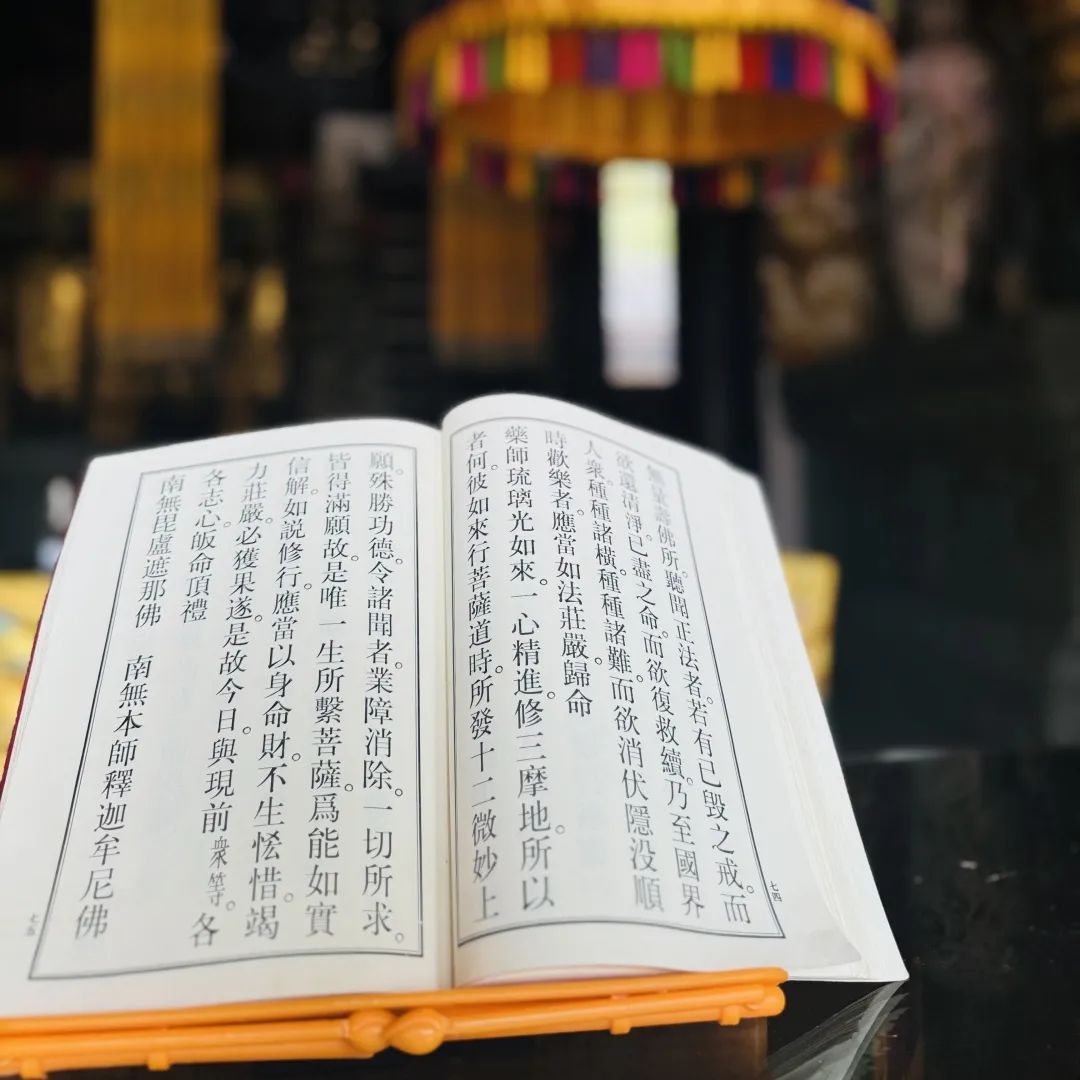 無量壽佛所。聽聞正法者。若有已毀之戒。而
欲還清淨。已盡之命。而欲復救續。乃至國界
人衆。種種諸橫。種種諸難。而欲消伏隱没。順
時歡樂者。應當如法莊嚴。歸命
藥師琉璃光如來。一心精進。修三摩地。所以
者何。彼如來行菩薩道時。所發十二微妙上
七四
願。殊勝功德。令諸聞者。業障消除。一切所求。
皆得滿願。故。是唯一生所繫菩薩。爲能如實
信解。如説修行。應當以身命財。不生恡惜。竭
力莊嚴。必獲果遂。是故今日。與現前衆等。各
各志心。皈命頂禮
南無毘盧遮那佛
南無本師釋迦牟尼佛
七五